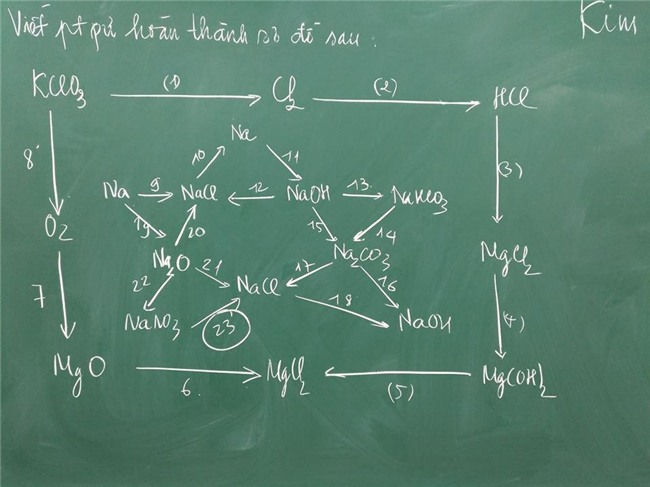 Viết pt pứ hoàn thành sơ đồ sau:
Kim
KClO3 (1) Cl2 (2) HCl
Na
8 10 11 (3)
Na 9 NaCl 12 NaOH 13 NaHCO3
19 20 15 14
O2 Na2O Na2CO3 MgCl2
22 21 17 16
7 NaCl 18 (4)
NaNO3 23 NaOH
MgO 6. MgCl2 (5) Mg(OH)2